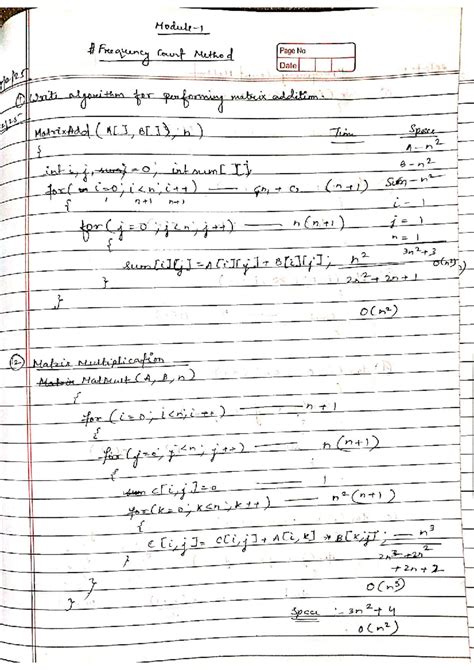 Module-1
# Frequency Count Method
Page No
Date
① Write algorithm for performing matrix addition.
MatrixAdd (A[ ], B[ ], n) Time Space
{ A - n²
int i, j, sum = 0, int num[ ][ ] B - n²
for (i=0; i<n; i++) (n+1) Sum - n²
1 n+1 n+1
{ i - 1
for (j=0; j<n; j++) n(n+1) j = 1
{ n = 1
sum[i][j] = A[i][j] + B[i][j]; n² 3n²+3
} 2n²+2n+1 O(n²)
} O(n²)
② Matrix Multiplication
Matrix MatMult (A, B, n)
{
for (i=0; i<n; i++) n+1
{
for (j=0; j<n; j++) n(n+1)
{
sum C[i,j]=0 1
for(k=0; k<n; k++) n²(n+1)
{
C[i,j]= C[i,j]+A[i,k] * B[k,j]; n³
} 2n³+2n²
+2n+2
} O(n³)
}
Space :- 3n²+4
O(n²)